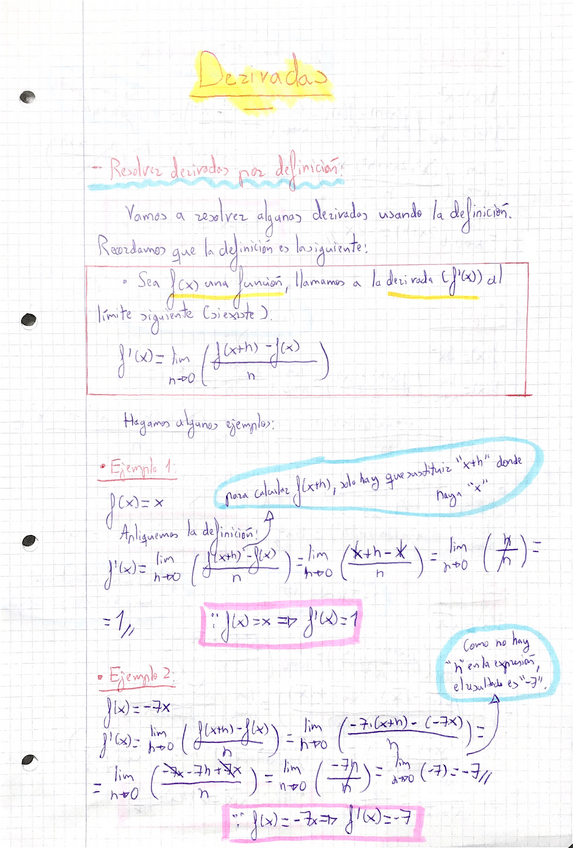 Derivadas
- Resolver derivadas por definición:
Vamos a resolver algunas derivadas usando la definición.
Recordamos que la definición es la siguiente:
• Sea f(x) una función, llamamos a la derivada (f'(x)) al
límite siguiente (si existe)
f'(x) = lim h→0 ( f(x+h) - f(x) / h )
Hagamos algunos ejemplos:
• Ejemplo 1:
para calcular f(x+h), solo hay que sustituir "x+h" donde
haya "x"
f(x) = x
Apliquemos la definición:
f'(x) = lim h→0 ( f(x+h) - f(x) / h ) = lim h→0 ( x + h - x / h ) = lim h→0 ( h / h ) =
= 1 //
∵ f(x) = x ⇒ f'(x) = 1
Como no hay
"h" en la expresión,
el resultado es "-7".
• Ejemplo 2:
f(x) = -7x
f'(x) = lim h→0 ( f(x+h) - f(x) / h ) = lim h→0 ( -7·(x+h) - (-7x) / h ) =
= lim h→0 ( -7x - 7h + 7x / h ) = lim h→0 ( -7h / h ) = lim h→0 (-7) = -7 //
∵ f(x) = -7x ⇒ f'(x) = -7